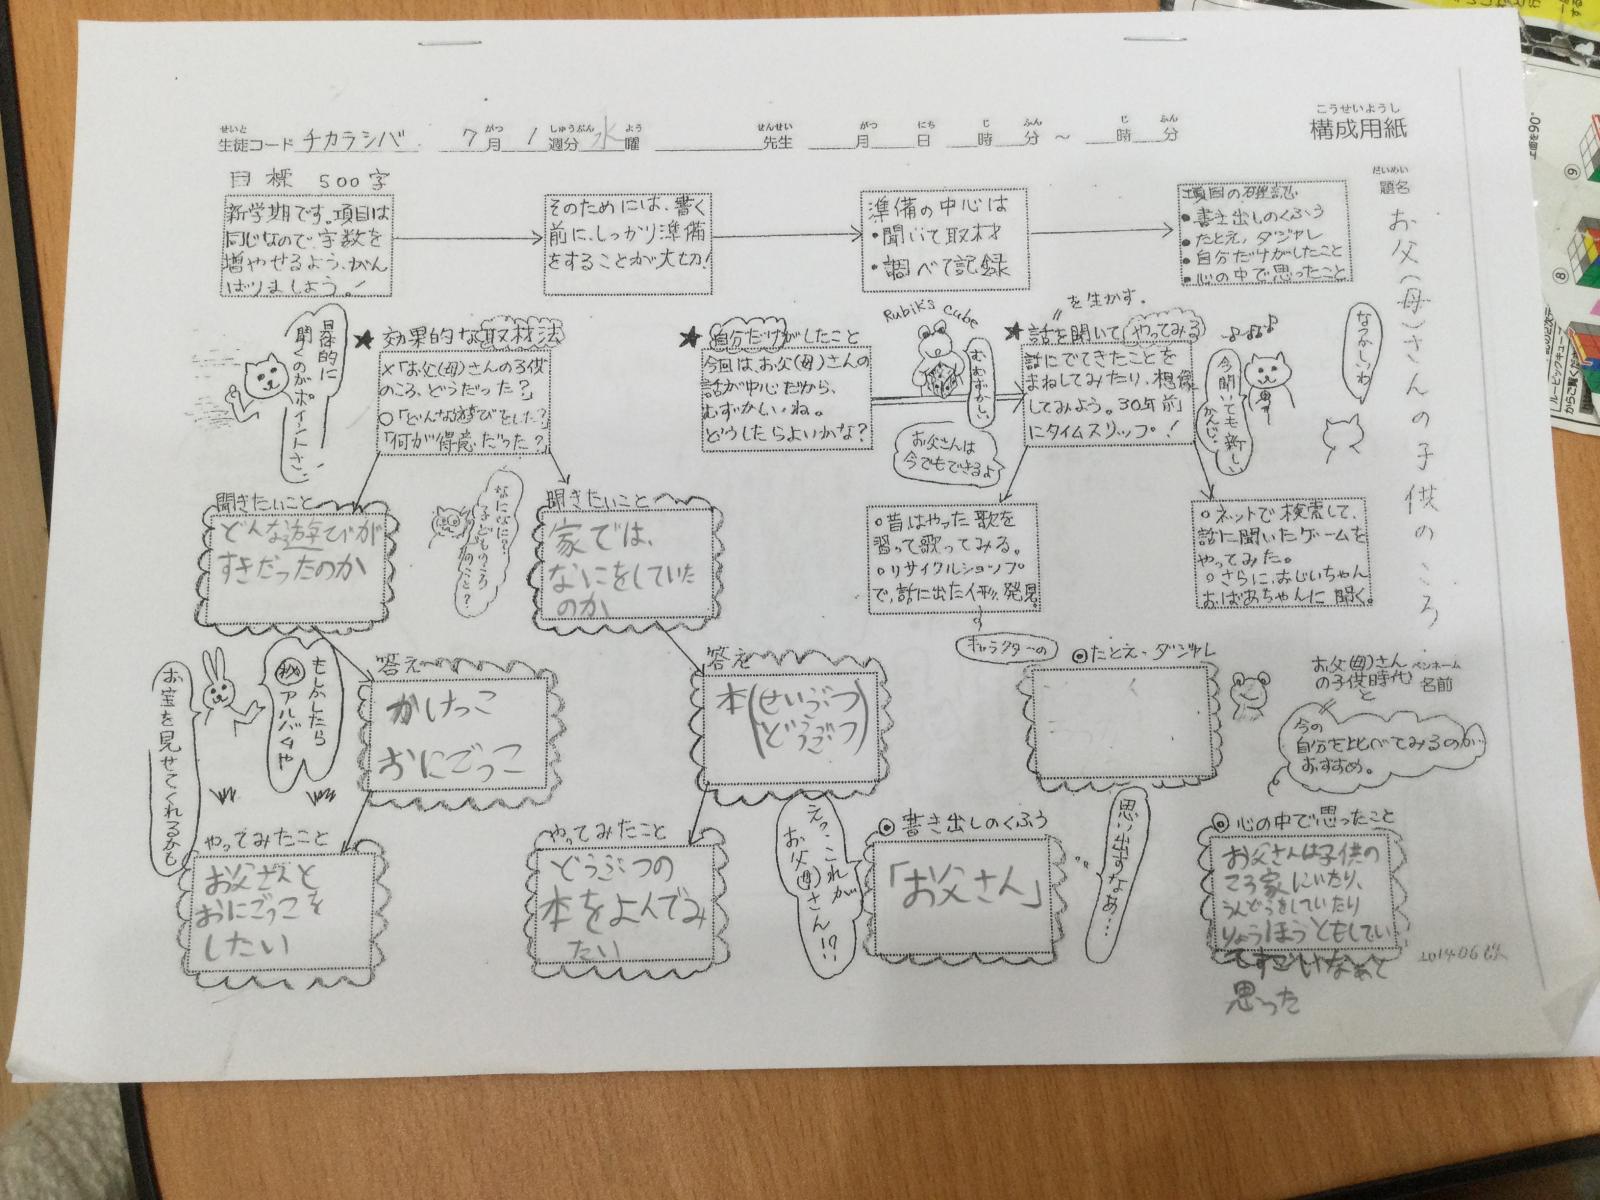 こうせいようし
構成用紙
せいと
生徒コード チカラシバ 7月 1週分 水曜 先生 月 日 時 分 ～ 時 分
がつ しゅうぶん よう せんせい がつ にち じ ふん じ ふん
だいめい
題名
お父(母)さんの子供のころ
目標 500字
新学期です。項目は
同じなので、字数を
増やせるよう、がん
ばりましょう。!
そのためには、書く
前に、しっかり準備
をすることが大切!
準備の中心は
・聞いて取材
・調べて記録
項目の確認
・書き出しのくふう
・たとえ、ダジャレ
・自分だけがしたこと
・心の中で思ったこと
具体的に
聞くのがポイントさ。
★効果的な取材法
×「お父(母)さんの子供
のころ、どうだった?」
○「どんな遊びをした?」
「何が得意だった?」
★自分だけがしたこと
今回は、お父(母)さんの
話が中心だから、
むずかしいね。
どうしたらよいかな?
Rubik's cube
むむずかしい
お父さんは
今でもできるよ
を生かす。
★話を聞いてやってみる
話にでてきたことを
まねしてみたり、想像
してみよう。30年前
にタイムスリップ!
♪♪♪
今聞いても新しい
かんじ。
なつかしいわ
聞きたいこと
どんな遊びが
すきだったのか
なになに?
子どものころ
のこと?
聞きたいこと
家では、
なにをしていた
のか
○昔はやった歌を
習って歌ってみる。
○リサイクルショップ
で、話に出た人形、発見。
○ネットで検索して、
話に聞いたゲームを
やってみた。
○さらに、おじいちゃん
おばあちゃんに聞く。
もしかしたら
㊙アルバムや
お宝を見せてくれるかも
答え
かけっこ
おにごっこ
答え
本(せいぶつ
どうぶつ)
キャラクターの
◎たとえ・ダジャレ
お父(母)さん
の子供時代
と
ペンネーム
名前
今の
自分を比べてみるのが
おすすめ。
やってみたこと
お父さんと
おにごっこを
したい
やってみたこと
どうぶつの
本をよんでみ
たい
えっ、これが
お父(母)さん!?
◎書き出しのくふう
「お父さん」
思い出すなあ…
◎心の中で思ったこと
お父さんは子供の
ころ家にいたり、
うんどうをしていたり
りょうほうともしてい
てすごいなぁと
思った